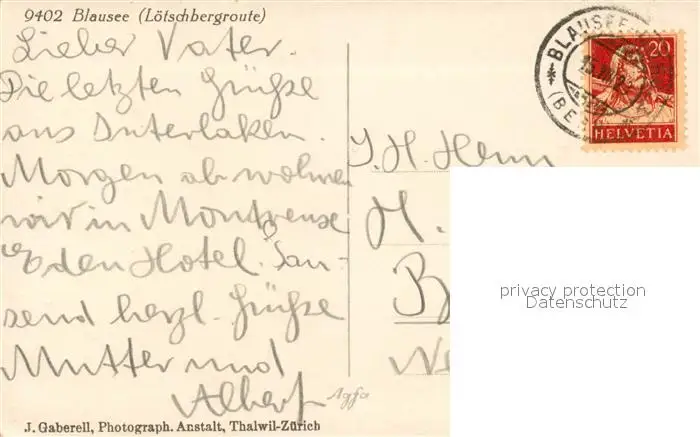 9402 Blausee (Lötschbergroute)
Lieber Vater.
Die letzten Grüße
aus Interlaken.
Morgen ab wohnen
wir in Montreuse
Eden Hotel. Tau-
send herzl. Grüße
Mutter und
Albert
J. Gaberell, Photograph. Anstalt, Thalwil-Zürich
Agfa
BLAUSEE
(BE
20
HELVETIA
S. H. Herrn
H.
B
privacy protection
Datenschutz